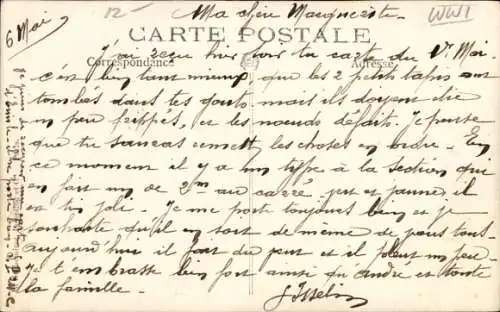 6 Mai
12-
Ma chère Marguerite.
WW1
CARTE POSTALE
Correspondance
Adresse
J'ai reçu hier soir ta carte du 1er Mai.
c'est bien tant mieux que les 2 petits tapis sont
tombés dans tes gouts mais ils doivent être
un peu frippés, et les nœuds defaits. Je pense
que tu sauras remett les choses en ordre. En
ce moment il y a un type à la section qui
en fait un de 2m au carré vert et jaune, il
est tres joli. Je me porte toujours bien et je
souhaite qu'il en soit de meme de vous tous.
aujourd'hui il fait du vent et il pleut un peu.
Je t'embrasse bien fort ainsi qu'andré et toute
la famille.